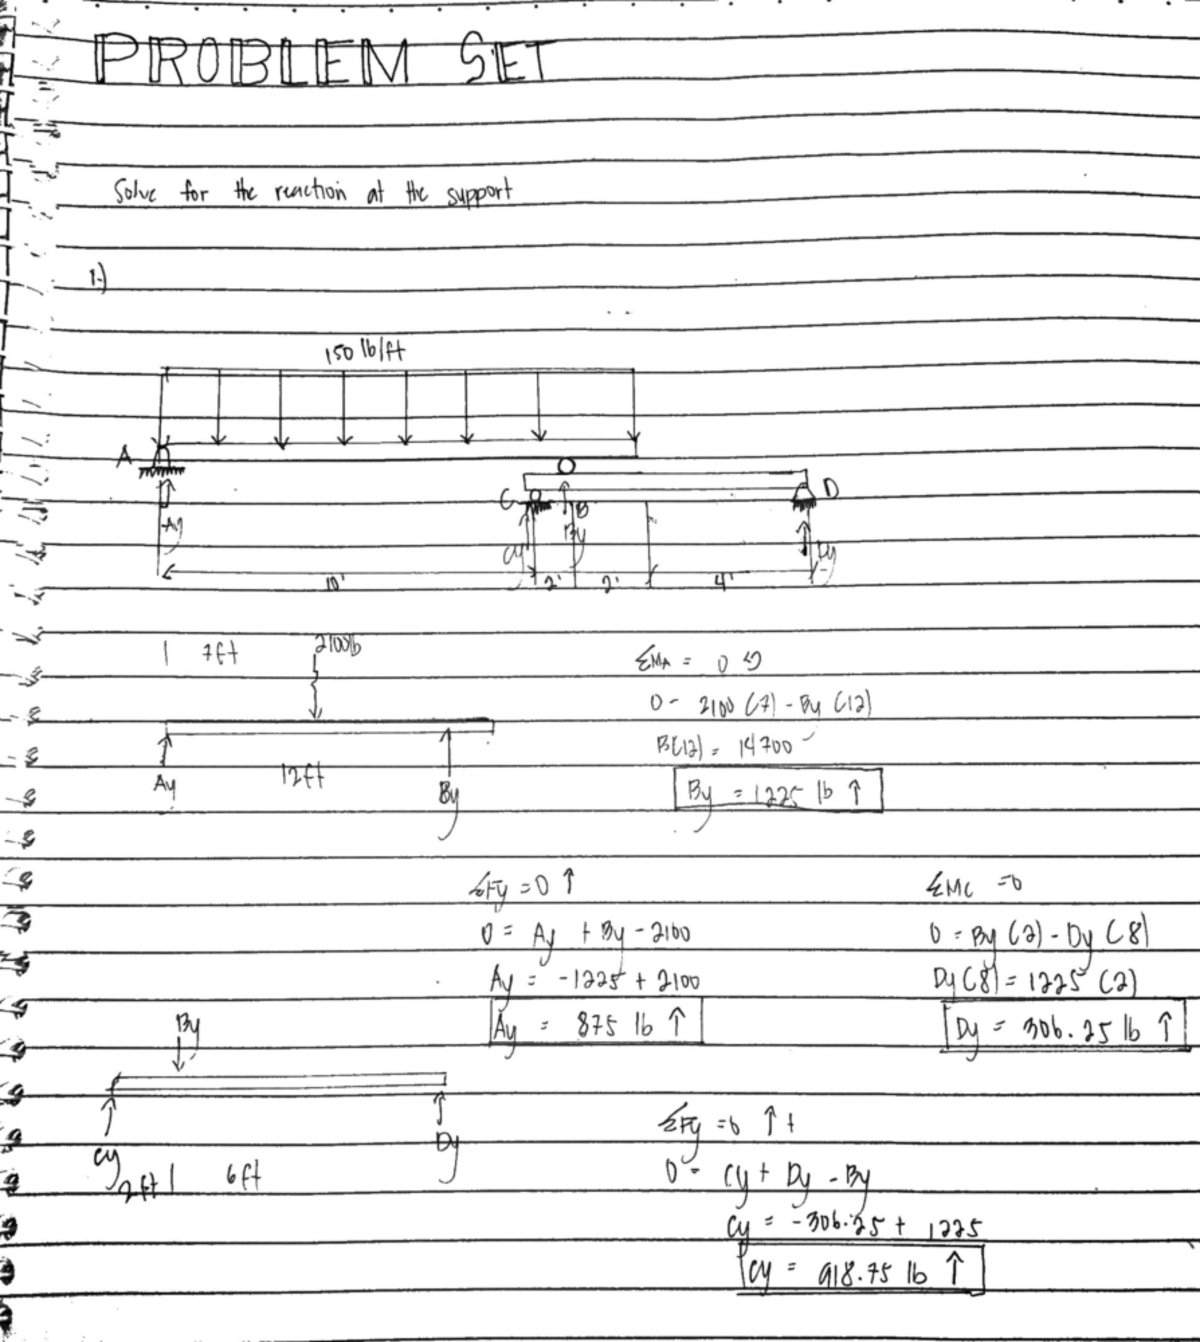 PROBLEM SET
Solve for the reaction at the support
1.)
150 lb/ft
A
C
B
D
Ay
Cy
By
Dy
10'
2'
2'
4'
7ft
2100lb
Ay
12ft
By
ΣMA = 0 ↻
0 = 2100 (7) - By (12)
B(12) = 14700
By = 1225 lb ↑
ΣFy = 0 ↑
0 = Ay + By - 2100
Ay = -1225 + 2100
Ay = 875 lb ↑
ΣMc = 0
0 = By (2) - Dy (8)
Dy (8) = 1225 (2)
Dy = 306.25 lb ↑
By
Cy
Dy
2ft
6ft
ΣFy = 0 ↑ +
0 = Cy + Dy - By
Cy = -306.25 + 1225
Cy = 918.75 lb ↑